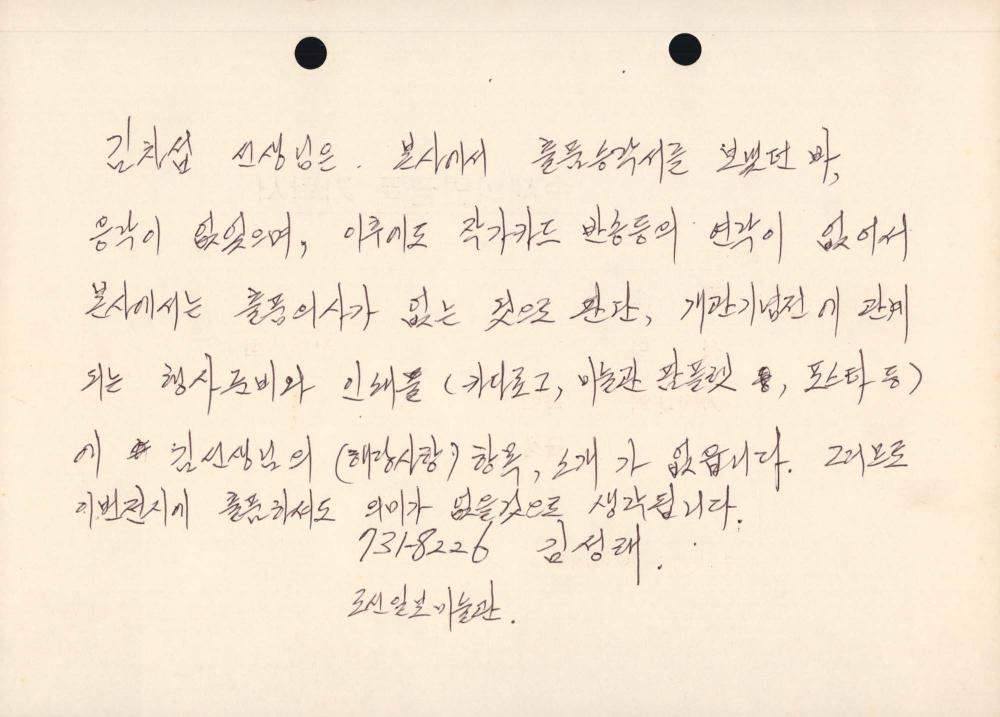 김치섭 선생님은. 본사에서 출품승락서를 보냈던 바,
응락이 없었으며, 이후에도 작가카드 반송등의 연락이 없어서
본사에서는 출품의사가 없는 것으로 판단, 개관기념전에 관계
되는 행사준비와 인쇄물 (카다로그, 미술관 팜플렛, 포스타 등)
에 김선생님의 (해당사항) 항목, 소개가 없읍니다. 그러므로
이번전시에 출품하셔도 의미가 없을것으로 생각됩니다.
731-8226 김성래.
조선일보미술관.